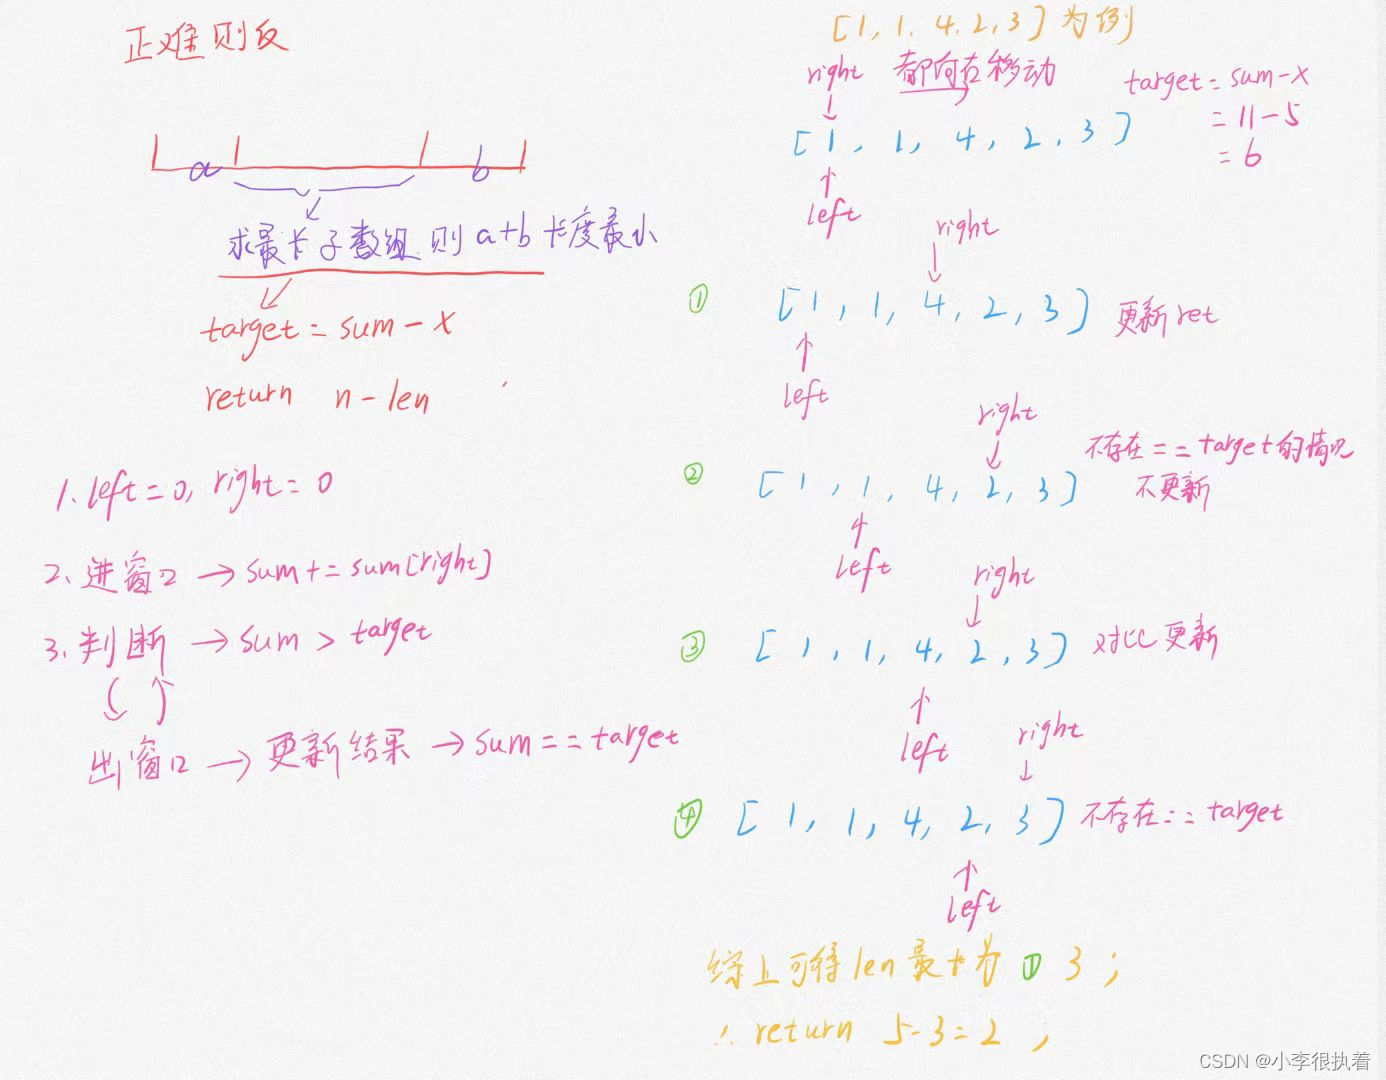 正难则反
a
b
求最长子数组 则 a+b 长度最小
target = sum - x
return n - len
1. left = 0, right = 0
2. 进窗口 → sum += sum[right]
3. 判断 → sum > target
出窗口 → 更新结果 → sum == target
[1, 1, 4, 2, 3] 为例
right 都向右移动
target = sum - x
= 11 - 5
= 6
[1, 1, 4, 2, 3]
left
right
① [1, 1, 4, 2, 3] 更新ret
left
right
不存在 == target的情况
② [1, 1, 4, 2, 3] 不更新
left
right
③ [1, 1, 4, 2, 3] 对比更新
left
right
④ [1, 1, 4, 2, 3] 不存在 == target
left
综上可得 len 最长为 ① 3;
∴ return 5-3=2,
CSDN @小李很执着